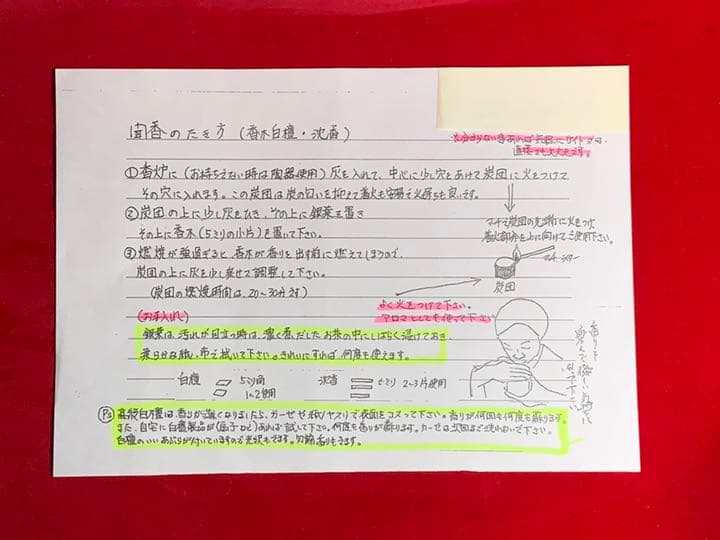 聞香のたき方 (香木白檀・沈香)
分からない事あれば気軽にサイト
直接でも大丈夫です。
①香炉に(お持ちでない時は陶器使用)灰を入れて、中心に少し穴をあけて炭団に火をつけて
その穴に入れます。この炭団は炭の匂いを抑えて着火も容易で火持ちも良いです。
②炭団の上に少し灰をひき、その上に銀葉を置き
その上に香木(5ミリの小片)を置いて下さい。
マッチで炭団の先端に火をつけ
着火部分を上に向けてご使用下さい。
③燃焼が強過ぎると、香木が香りを出す前に燃えてしまうので、
炭団の上に灰を少し乗せて調整して下さい。
(炭団の燃焼時間は、20〜30分です)
炭団
よく火をつけて下さい。
アロマとしても使って下さい
(お手入れ)
銀葉は、汚れが目立つ時は、濃く煮だしたお茶の中にしばらく漬けておき
柔らかな紙、布で拭いて下さい。きれいにすれば、何度も使えます。
香りを
楽しんで優しい気持に
なって下さい
白檀 5ミリ角 沈香 ミリ 2〜3片使用
1〜2使用
Ps 高級白檀は香りが薄くなりましたら、ガーゼや紙ヤスリで表面をコスって下さい。香りが何回も何度も蘇ります。
また、自宅に白檀製品が(扇子など)あれば試して下さい。何度も香りが蘇ります。ガーゼは次回まで洗わないで下さい。
白檀のいいあぶらが付いていますので光沢もでます。勿論香りもでます。